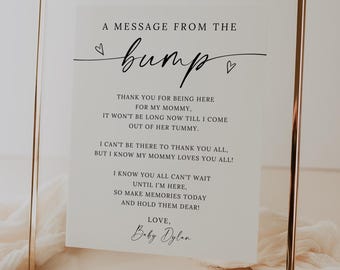 A MESSAGE FROM THE
bump
THANK YOU FOR BEING HERE
FOR MY MOMMY,
IT WON'T BE LONG NOW TILL I COME
OUT OF HER TUMMY.
I CAN'T BE THERE TO THANK YOU ALL,
BUT I KNOW MY MOMMY LOVES YOU ALL!
I KNOW YOU ALL CAN'T WAIT
UNTIL I'M HERE,
SO MAKE MEMORIES TODAY
AND HOLD THEM DEAR!
LOVE,
Baby Dylan